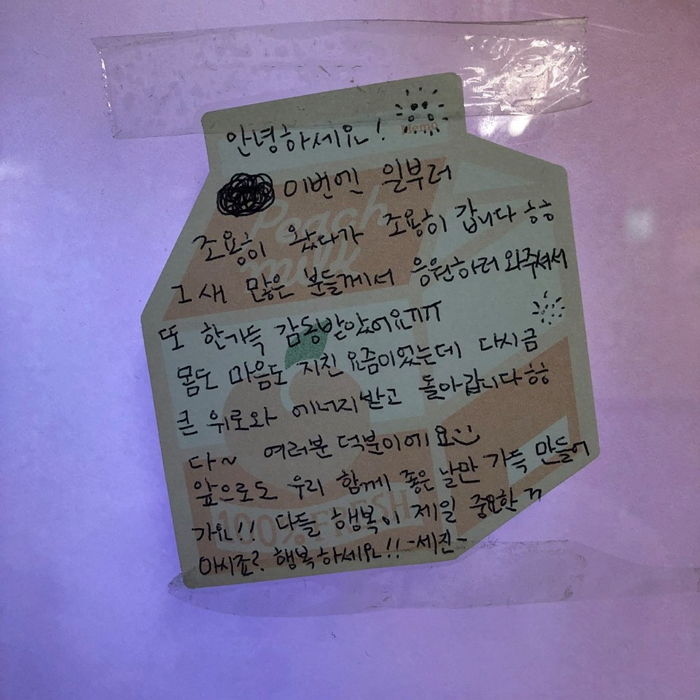 안녕하세요!
memo
이번엔 일부러
조용히 왔다가 조용히 갑니다 ㅎㅎ
그새 많은 분들께서 응원하러 와주셔서
또 한가득 감동받았어요ㅠㅠ
몸도 마음도 지친 요즘이었는데 다시금
큰 위로와 에너지받고 돌아갑니다ㅎㅎ
다~ 여러분 덕분이에요
앞으로도 우리 함께 좋은 날만 가득 만들어
가요!! 다들 행복이 제일 중요한 거
아시죠? 행복하세요!! -세진-
Peach
milk
100% FRESH